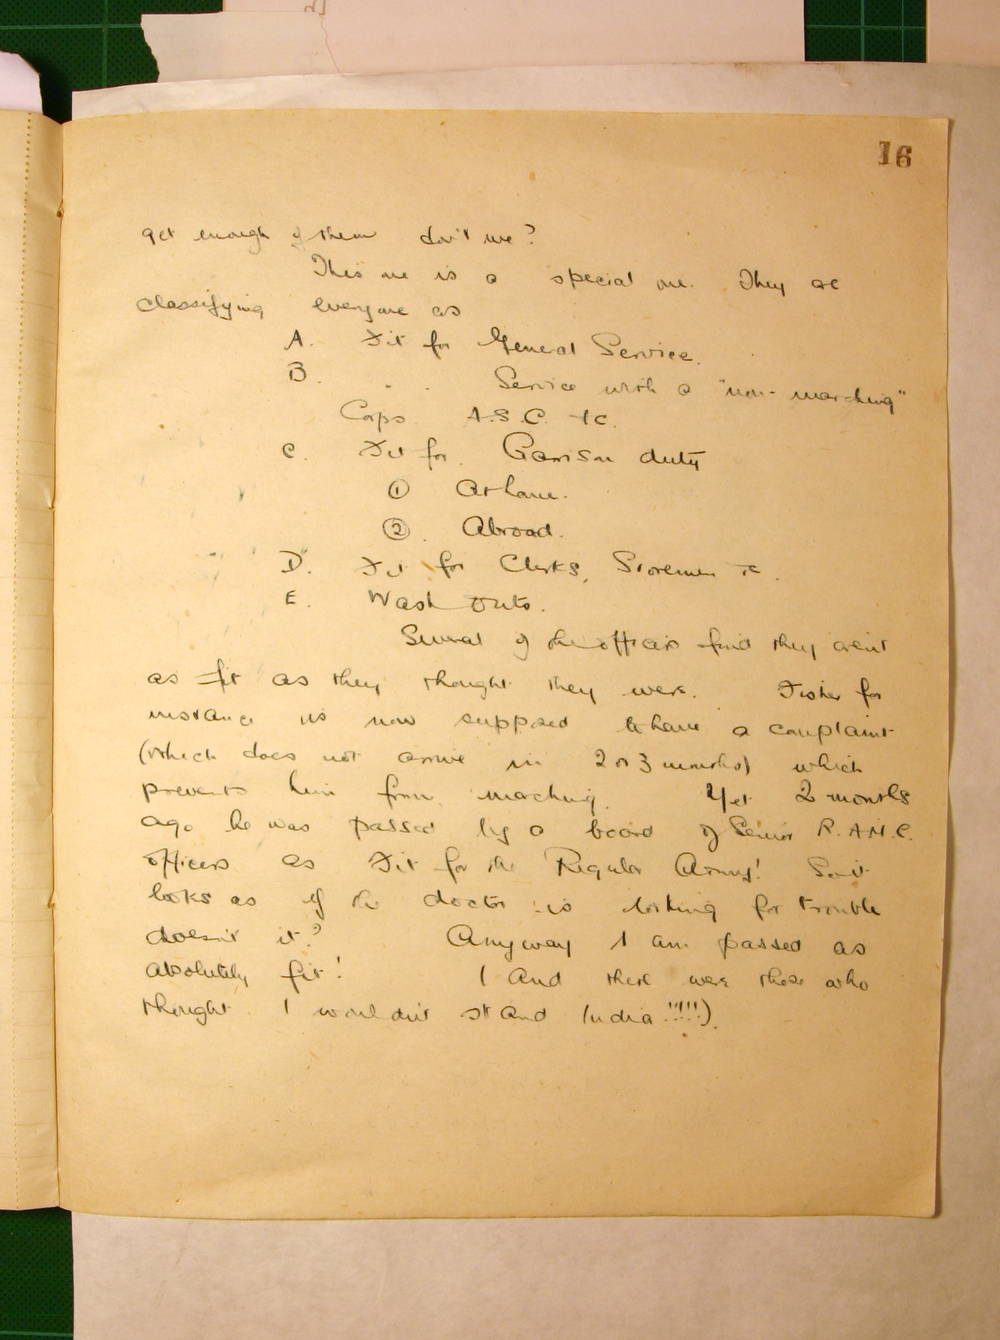 16
get enough of them don't we?
This one is a special one. They are
classifying everyone as
A. Fit for General Service.
B. " " Service with a "non-marching"
Corps A.S.C. etc.
C. Fit for Garrison duty
① At home.
② Abroad.
D. Fit for Clerks, Storemen etc.
E. Wash outs.
Several of the officers find they aren't
as fit as they thought they were. Fisher for
instance is now supposed to have a complaint
(which does not arrive in 2 or 3 months) which
prevents him from marching. Yet 2 months
ago he was passed by a board of Senior R.A.M.C.
officers as Fit for the Regular Army! So it
looks as if the doctor is looking for trouble
doesn't it? Anyway I am passed as
absolutely fit! (And there were those who
thought I wouldn't stand India!!!!!).